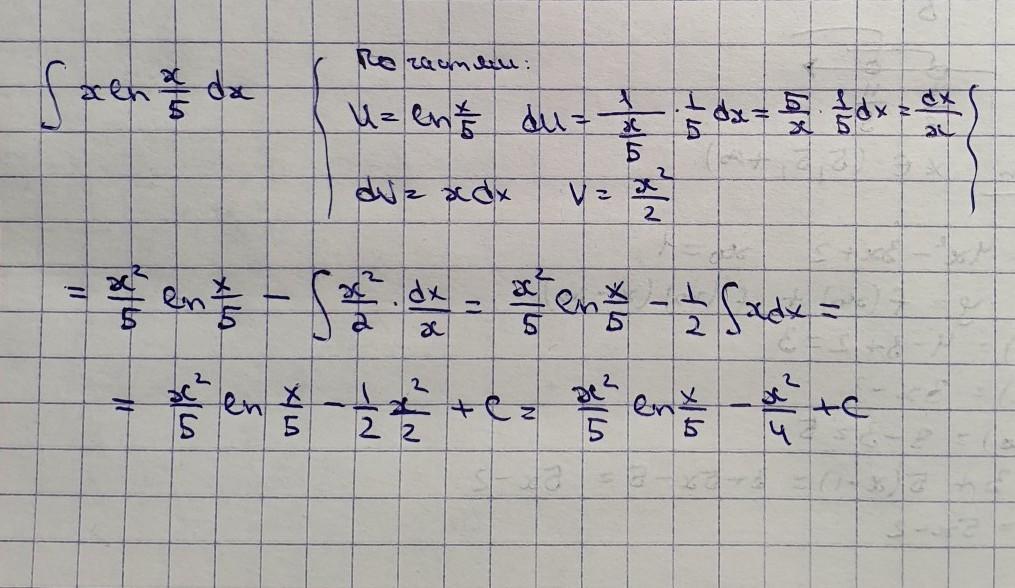 ∫ x ln x/5 dx { По частям:
U = ln x/5 du = 1/(x/5) · 1/5 dx = 5/x · 1/5 dx = dx/x }
dv = x dx V = x²/2
= x²/5 ln x/5 − ∫ x²/2 · dx/x = x²/5 ln x/5 − 1/2 ∫ x dx =
= x²/5 ln x/5 − 1/2 x²/2 + C = x²/5 ln x/5 − x²/4 + C